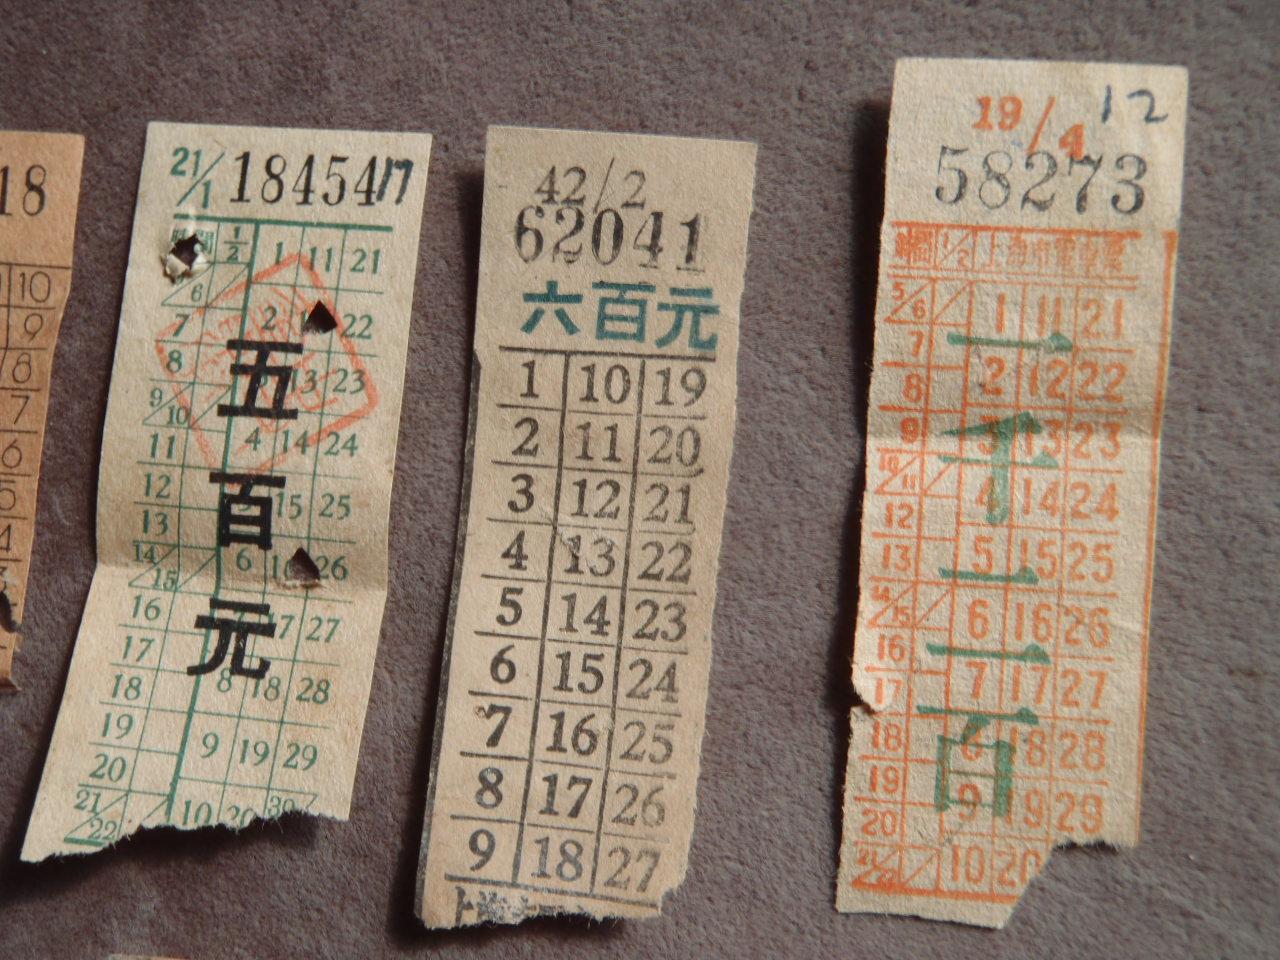 18
10
9
8
7
6
5
4
21/1 18454 17
時間 1/2 1 11 21
6
7 2 22
8 13 23
9/10
11 4 14 24
12 15 25
13
14/15 6 26
16 17 27
17
18 8 18 28
19 9 19 29
20
21/22 10 20 30
五百元
42/2
62041
六百元
1 10 19
2 11 20
3 12 21
4 13 22
5 14 23
6 15 24
7 16 25
8 17 26
9 18 27
上海
19/4 12
58273
時間 1/2 上海市電車票
5/6 1 11 21
7 2 12 22
8
9 3 13 23
10/11 4 14 24
12
13 5 15 25
14/15 6 16 26
16
17 7 17 27
18 8 18 28
19 9 19 29
20
21/22 10 20
一千二百